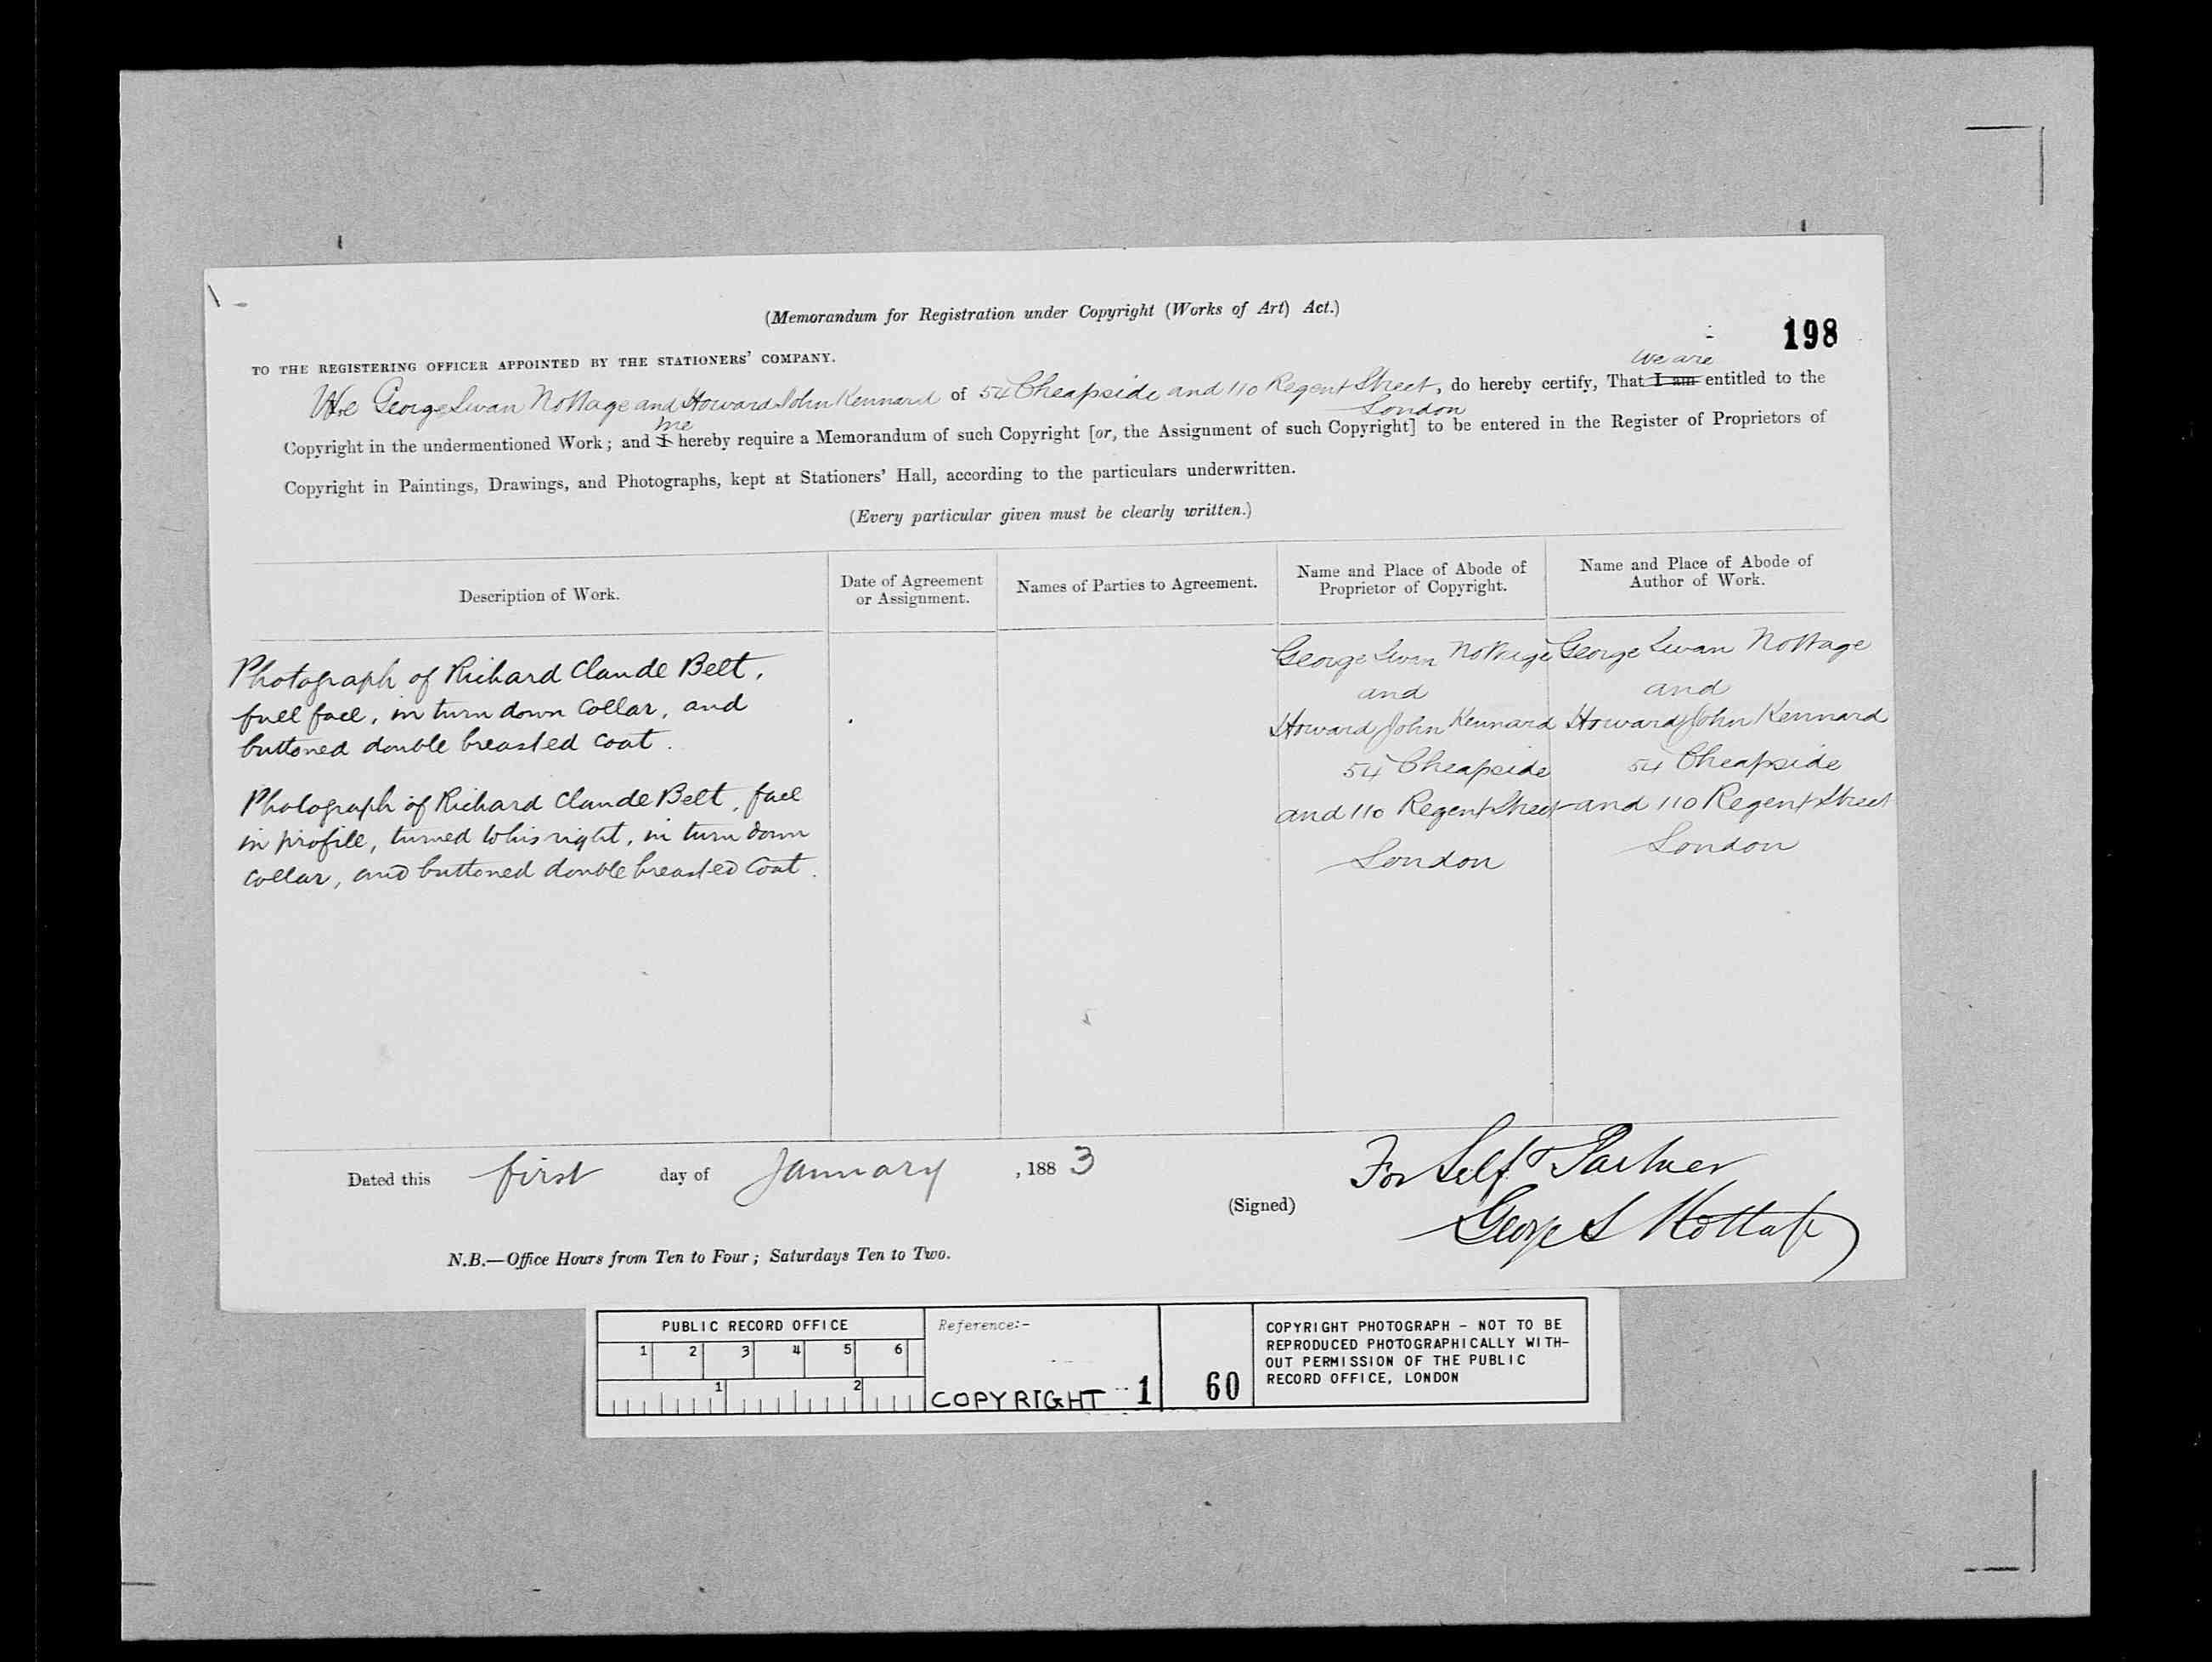 (Memorandum for Registration under Copyright (Works of Art) Act.)
198
TO THE REGISTERING OFFICER APPOINTED BY THE STATIONERS' COMPANY.
we are
We George Swan Nottage and Howard John Kennard of 54 Cheapside and 110 Regent Street, do hereby certify, That I am entitled to the
London
we
Copyright in the undermentioned Work; and I hereby require a Memorandum of such Copyright [or, the Assignment of such Copyright] to be entered in the Register of Proprietors of
Copyright in Paintings, Drawings, and Photographs, kept at Stationers' Hall, according to the particulars underwritten.
(Every particular given must be clearly written.)
Description of Work.
Date of Agreement
or Assignment.
Names of Parties to Agreement.
Name and Place of Abode of
Proprietor of Copyright.
Name and Place of Abode of
Author of Work.
Photograph of Richard Claude Belt,
full face, in turn down collar, and
buttoned double breasted coat.
Photograph of Richard Claude Belt, face
in profile, turned to his right, in turn down
collar, and buttoned double breasted coat.
George Swan Nottage
and
Howard John Kennard
54 Cheapside
and 110 Regent Street
London
George Swan Nottage
and
Howard John Kennard
54 Cheapside
and 110 Regent Street
London
Dated this first day of January, 1883
(Signed)
For Self & Partner
George S Nottage
N.B.—Office Hours from Ten to Four; Saturdays Ten to Two.
PUBLIC RECORD OFFICE
1 2 3 4 5 6
1 2
Reference:-
COPYRIGHT 1
60
COPYRIGHT PHOTOGRAPH - NOT TO BE
REPRODUCED PHOTOGRAPHICALLY WITH-
OUT PERMISSION OF THE PUBLIC
RECORD OFFICE, LONDON